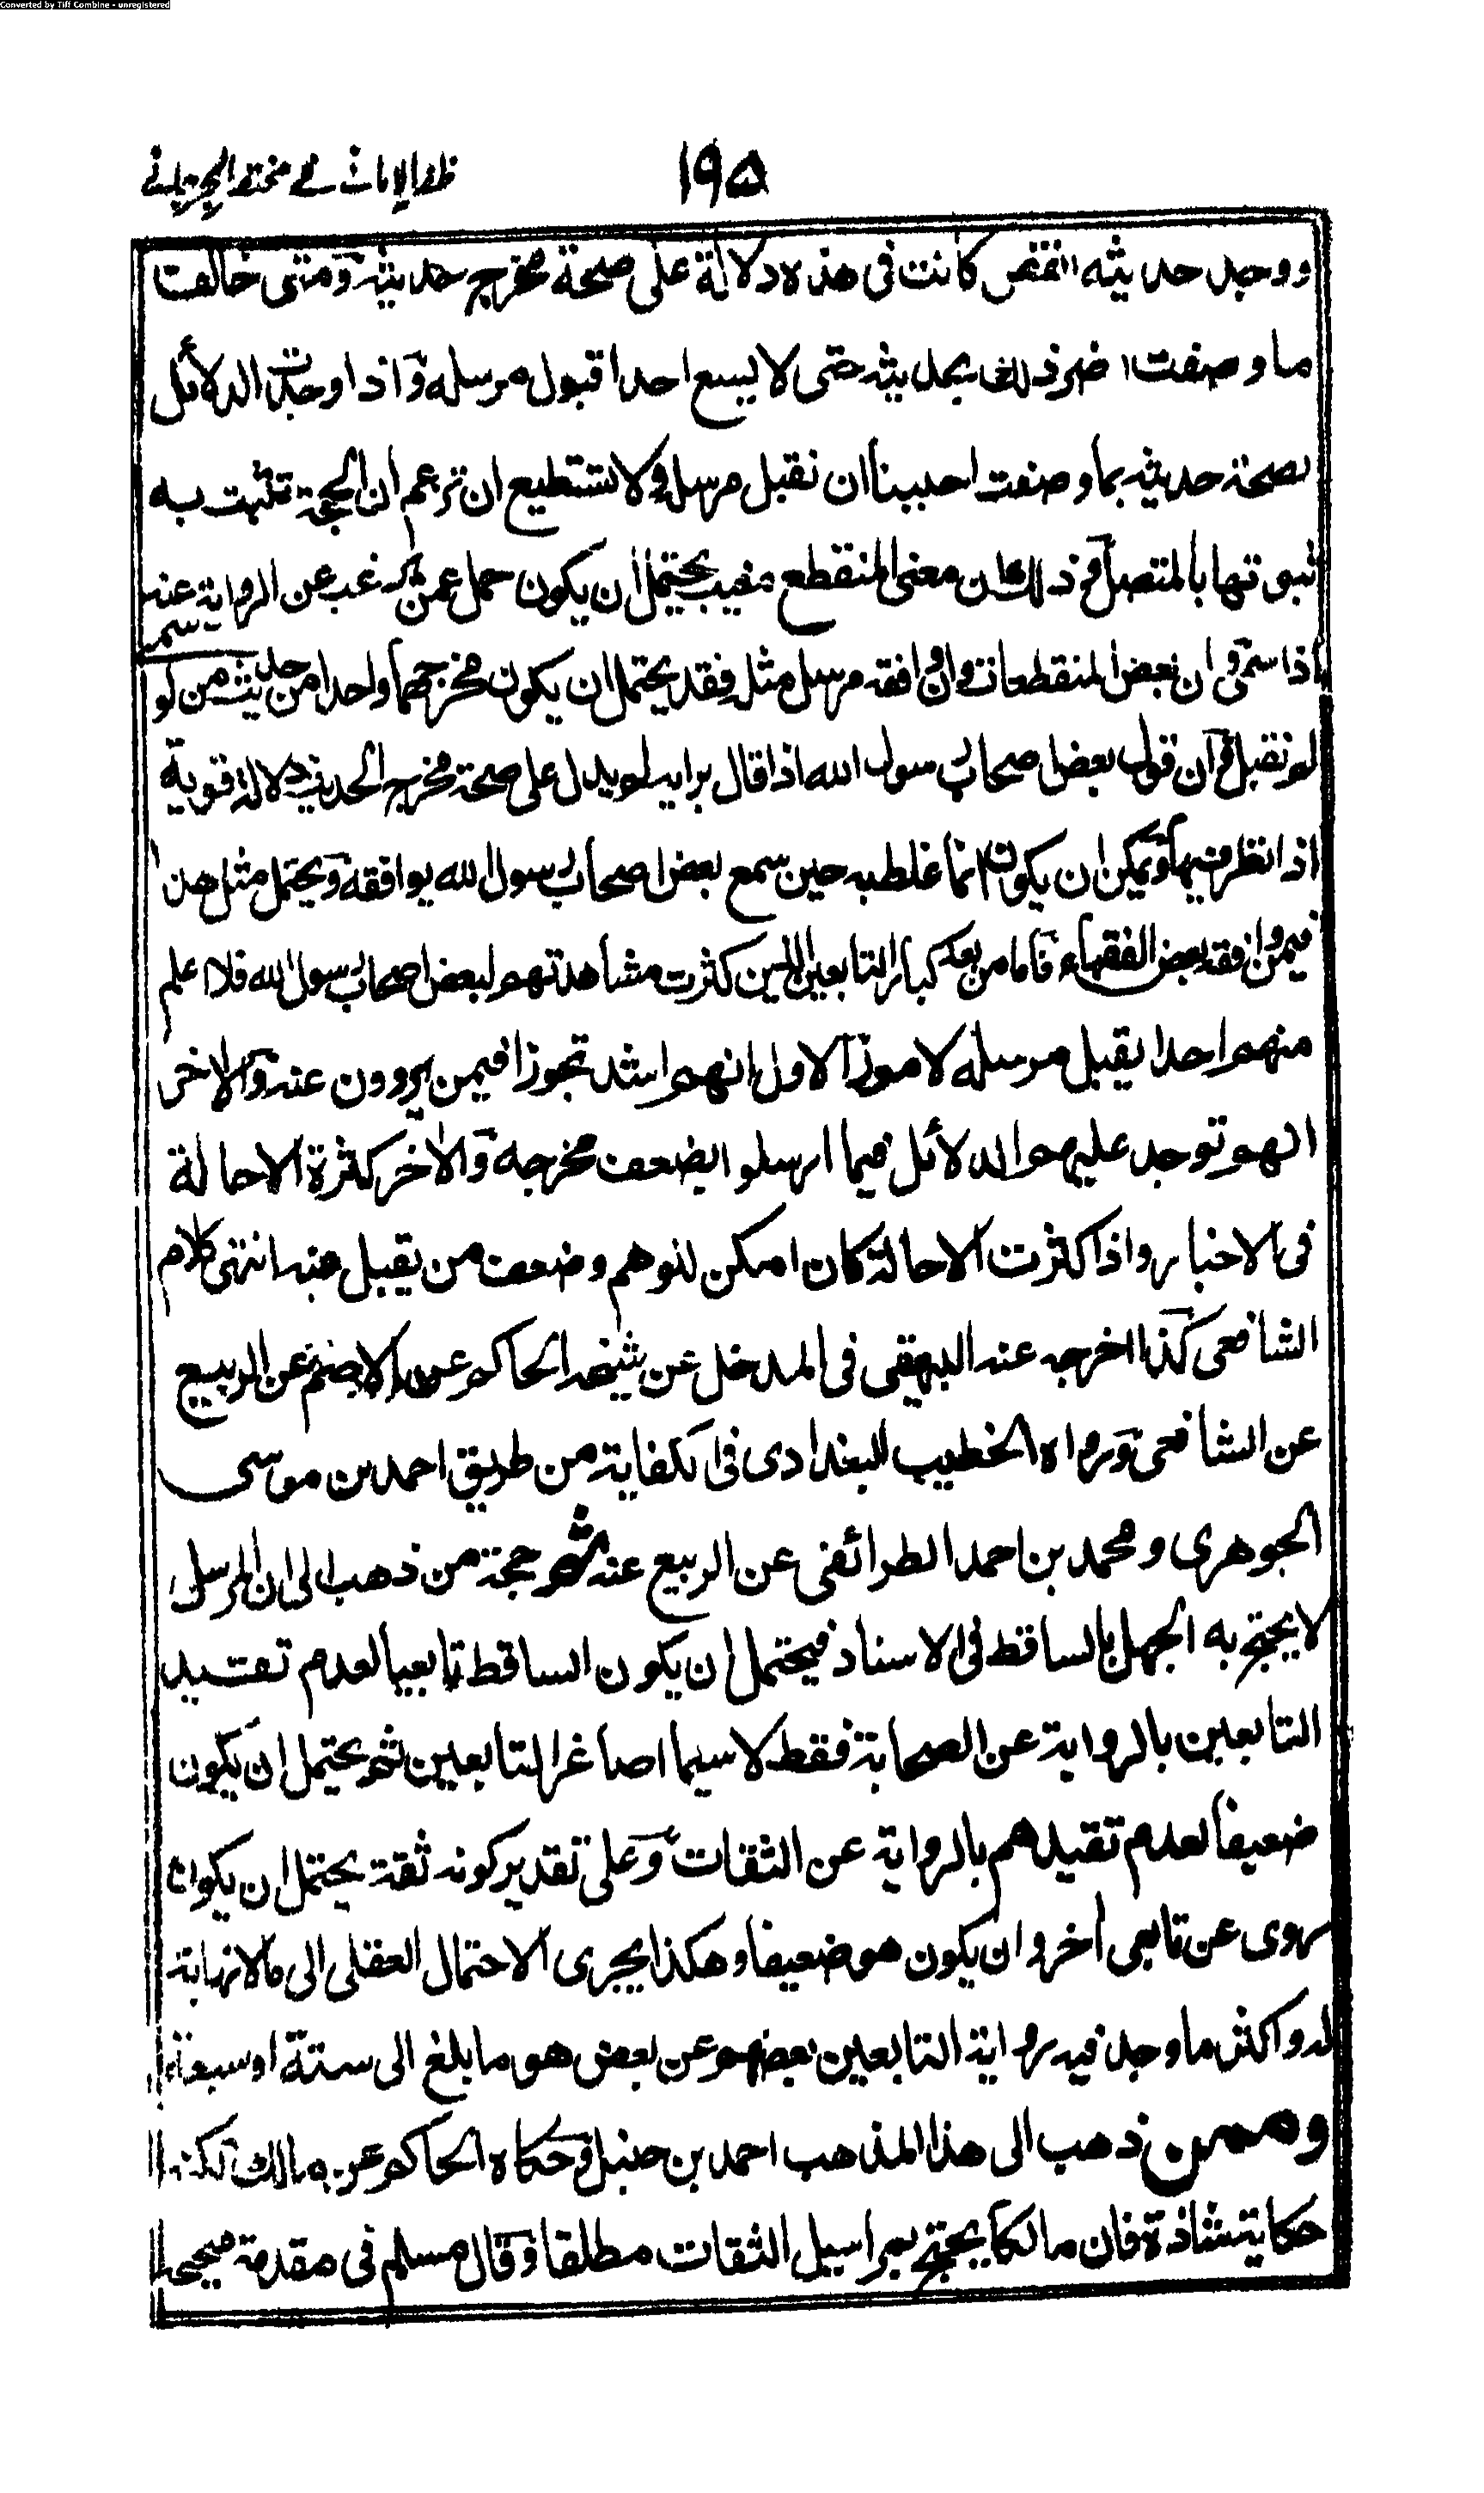 Converted by Tiff Combine - unregistered
١٩٥
ظفر الاماني في مختصر الجرجاني
ووجد حديثه انقص كانت في هذه دلالة على صحة مخرج حديثه ومتى خالفت
ما وصفت اضر ذلك بحديثه حتى لا يسع احدا قبول مرسله واذا وجدت الدلائل
بصحة حديثه بما وصفت احببنا ان نقبل مرسله ولا نستطيع ان نزعم ان الحجة تثبت به
ثبوتها بالمتصل وذلك ان معنى المنقطع مغيب يحتمل ان يكون حمل عمن يرغب عن الرواية عنه
اذا سمى وان بعض المنقطعات وان وافقه مرسل مثله فقد يحتمل ان يكون مخرجهما واحدا من حديث من لو سمى
لم نقبل وان قول بعض صحاب رسول الله اذا قال برايه لو يدل على صحة مخرج الحديث دلالة قوية
اذا نظر فيها ويمكن ان يكون انما غلط به حين سمع بعض اصحاب رسول الله يوافقه ويحتمل مثل هذا
فيمن وافقه بعض الفقهاء فاما من بعد كبار التابعين الذين كثرت مشاهدتهم لبعض اصحاب رسول الله فلا اعلم
منهم احدا يقبل مرسله لامور الاول انهم اشد تجوزا فيمن يروون عنه والاخر
انهم توجد عليهم الدلائل فيما ارسلوا بضعف مخرجه والاخر كثرة الاحالة
في الاخبار واذا كثرت الاحالة كان امكن للوهم وضعف من يقبل عنه انتهى كلام
الشافعي كذا اخرجه عنه البيهقي في المدخل عن شيخه الحاكم عن الاصم عن الربيع
عن الشافعي ورواه الخطيب البغدادي في الكفاية من طريق احمد بن موسى
الجوهري ومحمد بن احمد الطرائفي عن الربيع عنه ثم حجة من ذهب الى ان المرسل
لا يحتج به الجهل بالساقط في الاسناد فيحتمل ان يكون الساقط تابعيا لعدم تقييد
التابعين بالرواية عن الصحابة فقط لا سيما اصاغر التابعين ثم يحتمل ان يكون
ضعيفا لعدم تقيدهم بالرواية عن الثقات وعلى تقدير كونه ثقة يحتمل ان يكون
روى عن تابعي اخر وان يكون هو ضعيفا وهكذا يجري الاحتمال العقلي الى ما لا نهاية
له واكثر ما وجد فيه رواية التابعين بعضهم عن بعض هو ما بلغ الى ستة او سبعة
وممن ذهب الى هذا المذهب احمد بن حنبل وحكاه الحاكم عن مالك لكنه
حكاية شاذة فان مالكا يحتج بمراسيل الثقات مطلقا وقال مسلم في مقدمة صحيحه